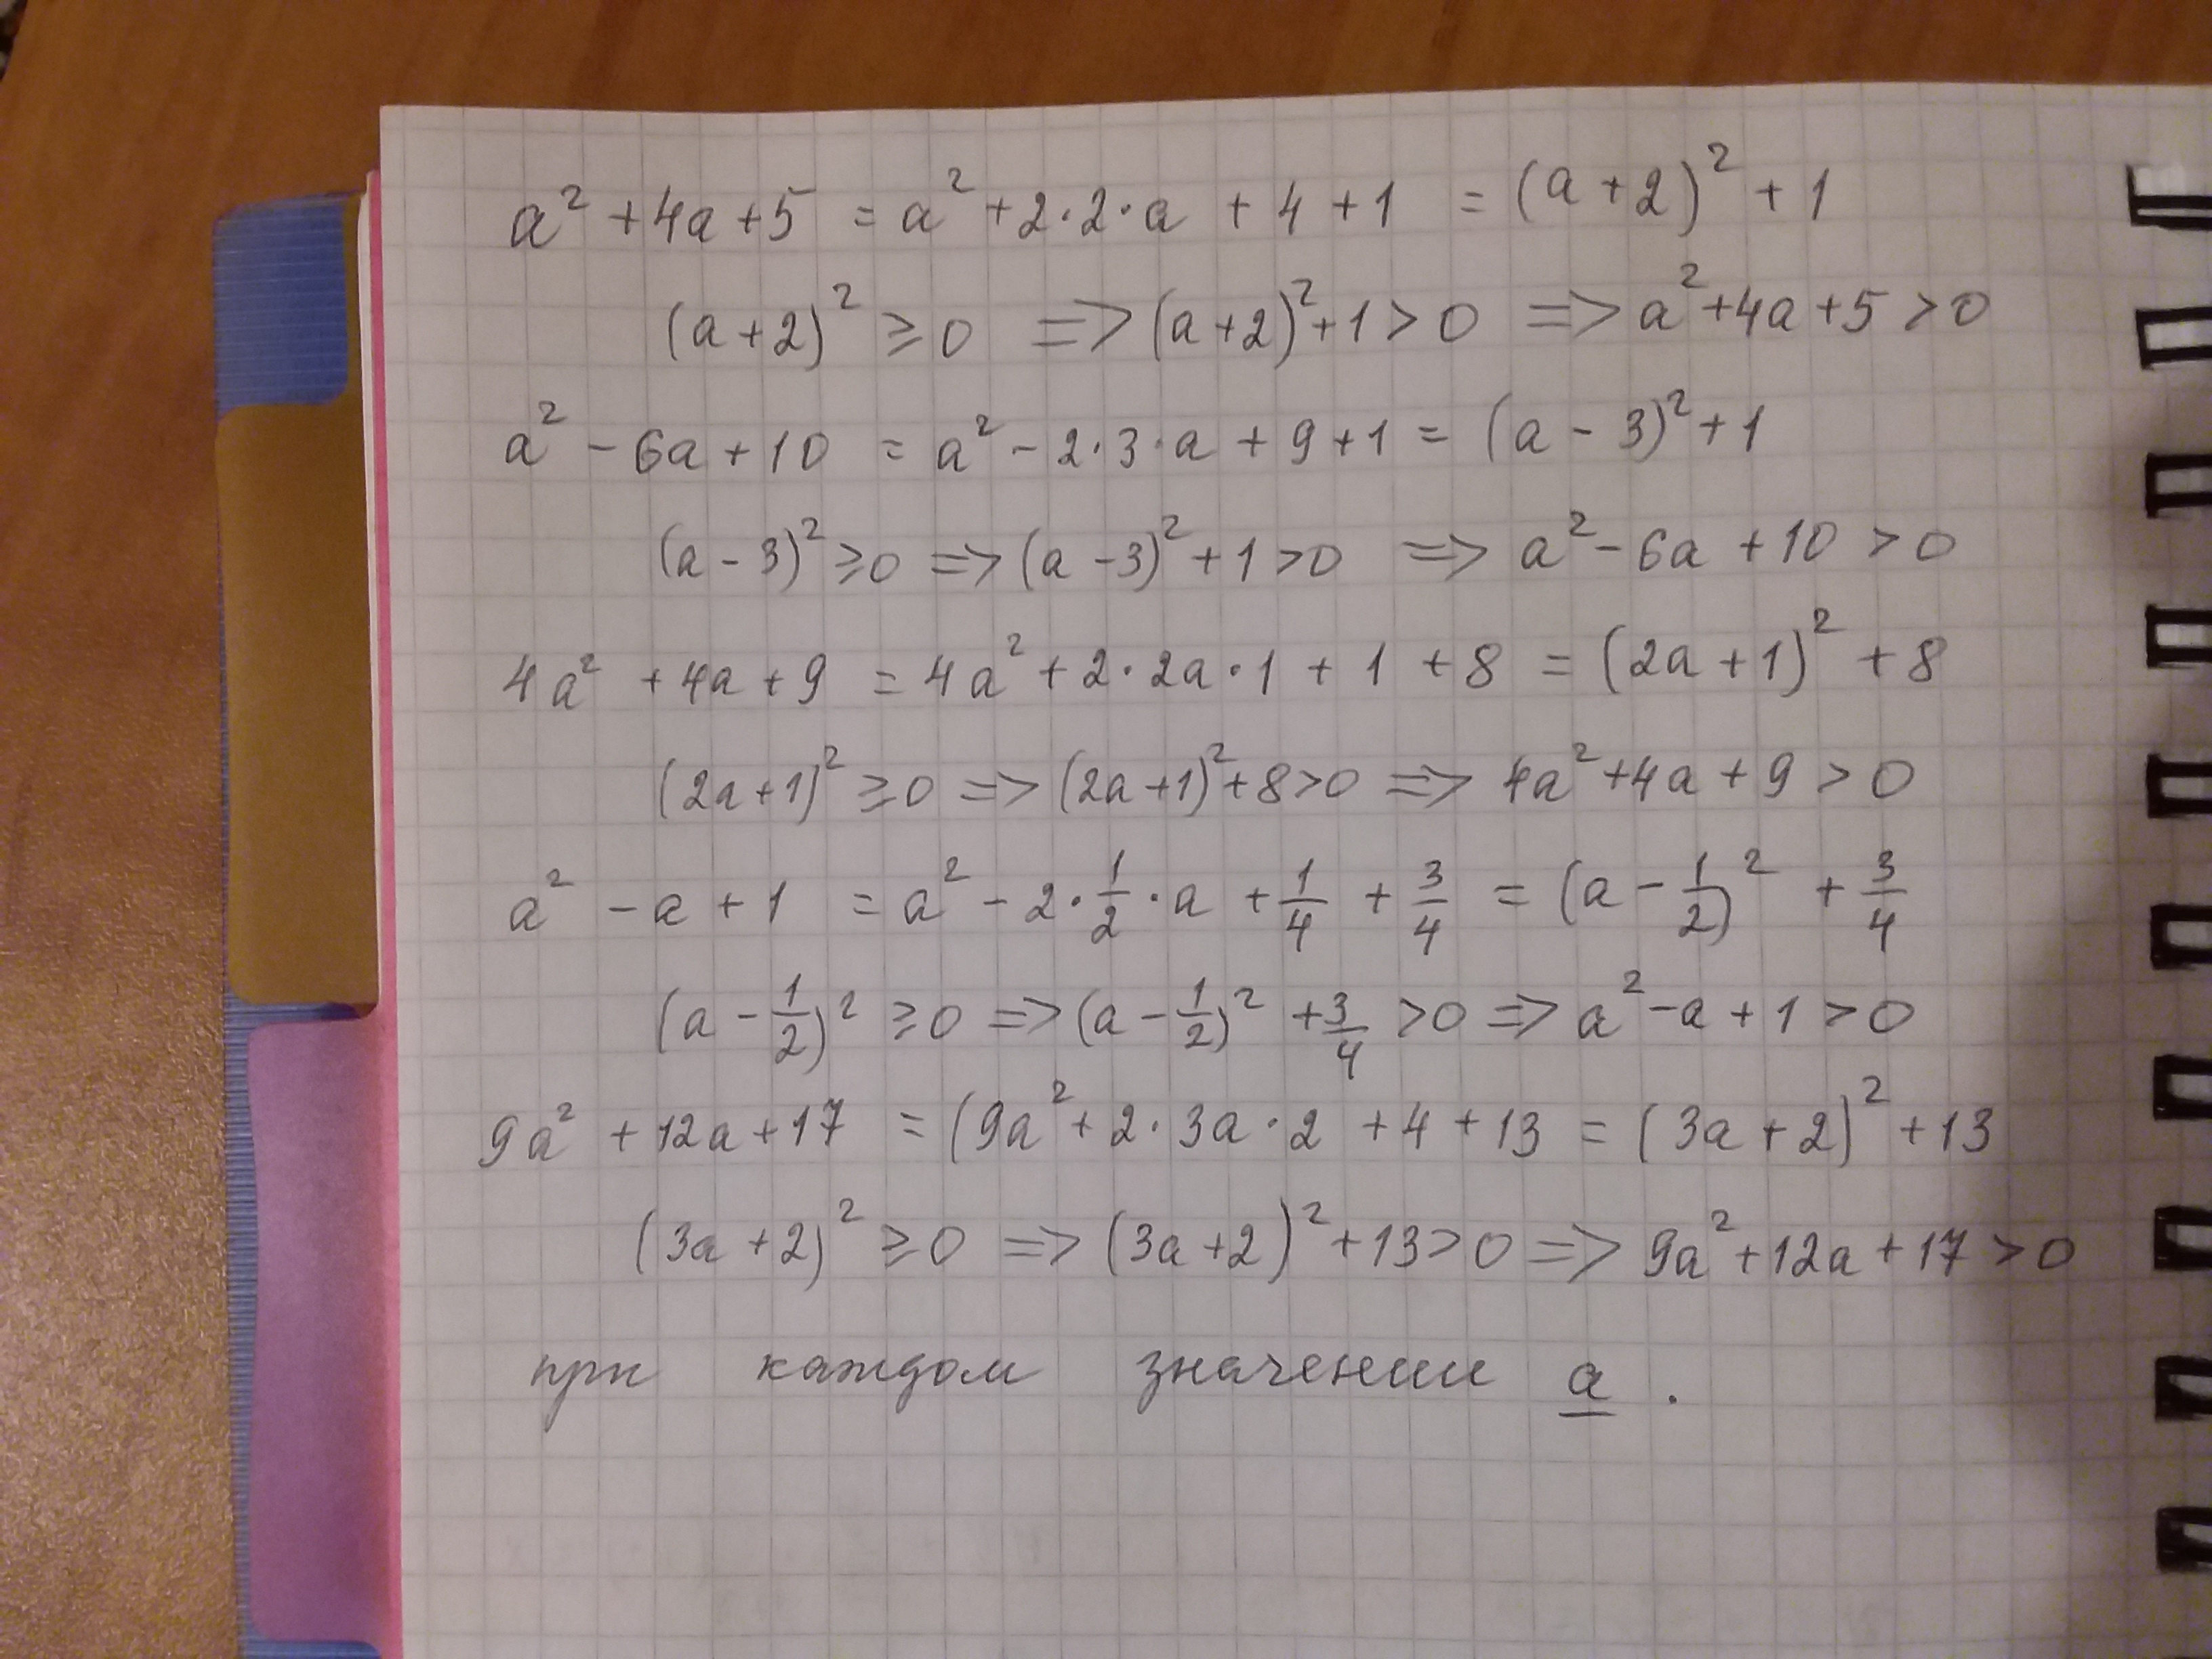 a² + 4a + 5 = a² + 2·2·a + 4 + 1 = (a + 2)² + 1
(a + 2)² ≥ 0 => (a + 2)² + 1 > 0 => a² + 4a + 5 > 0
a² - 6a + 10 = a² - 2·3·a + 9 + 1 = (a - 3)² + 1
(a - 3)² ≥ 0 => (a - 3)² + 1 > 0 => a² - 6a + 10 > 0
4a² + 4a + 9 = 4a² + 2·2a·1 + 1 + 8 = (2a + 1)² + 8
(2a + 1)² ≥ 0 => (2a + 1)² + 8 > 0 => 4a² + 4a + 9 > 0
a² - a + 1 = a² - 2·1/2·a + 1/4 + 3/4 = (a - 1/2)² + 3/4
(a - 1/2)² ≥ 0 => (a - 1/2)² + 3/4 > 0 => a² - a + 1 > 0
9a² + 12a + 17 = (9a² + 2·3a·2 + 4 + 13 = (3a + 2)² + 13
(3a + 2)² ≥ 0 => (3a + 2)² + 13 > 0 => 9a² + 12a + 17 > 0
при каждом значении a .